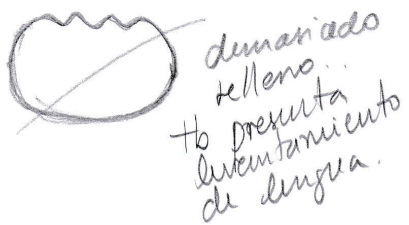 demasiado
relleno...
tb presenta
levantamiento
de lengua.